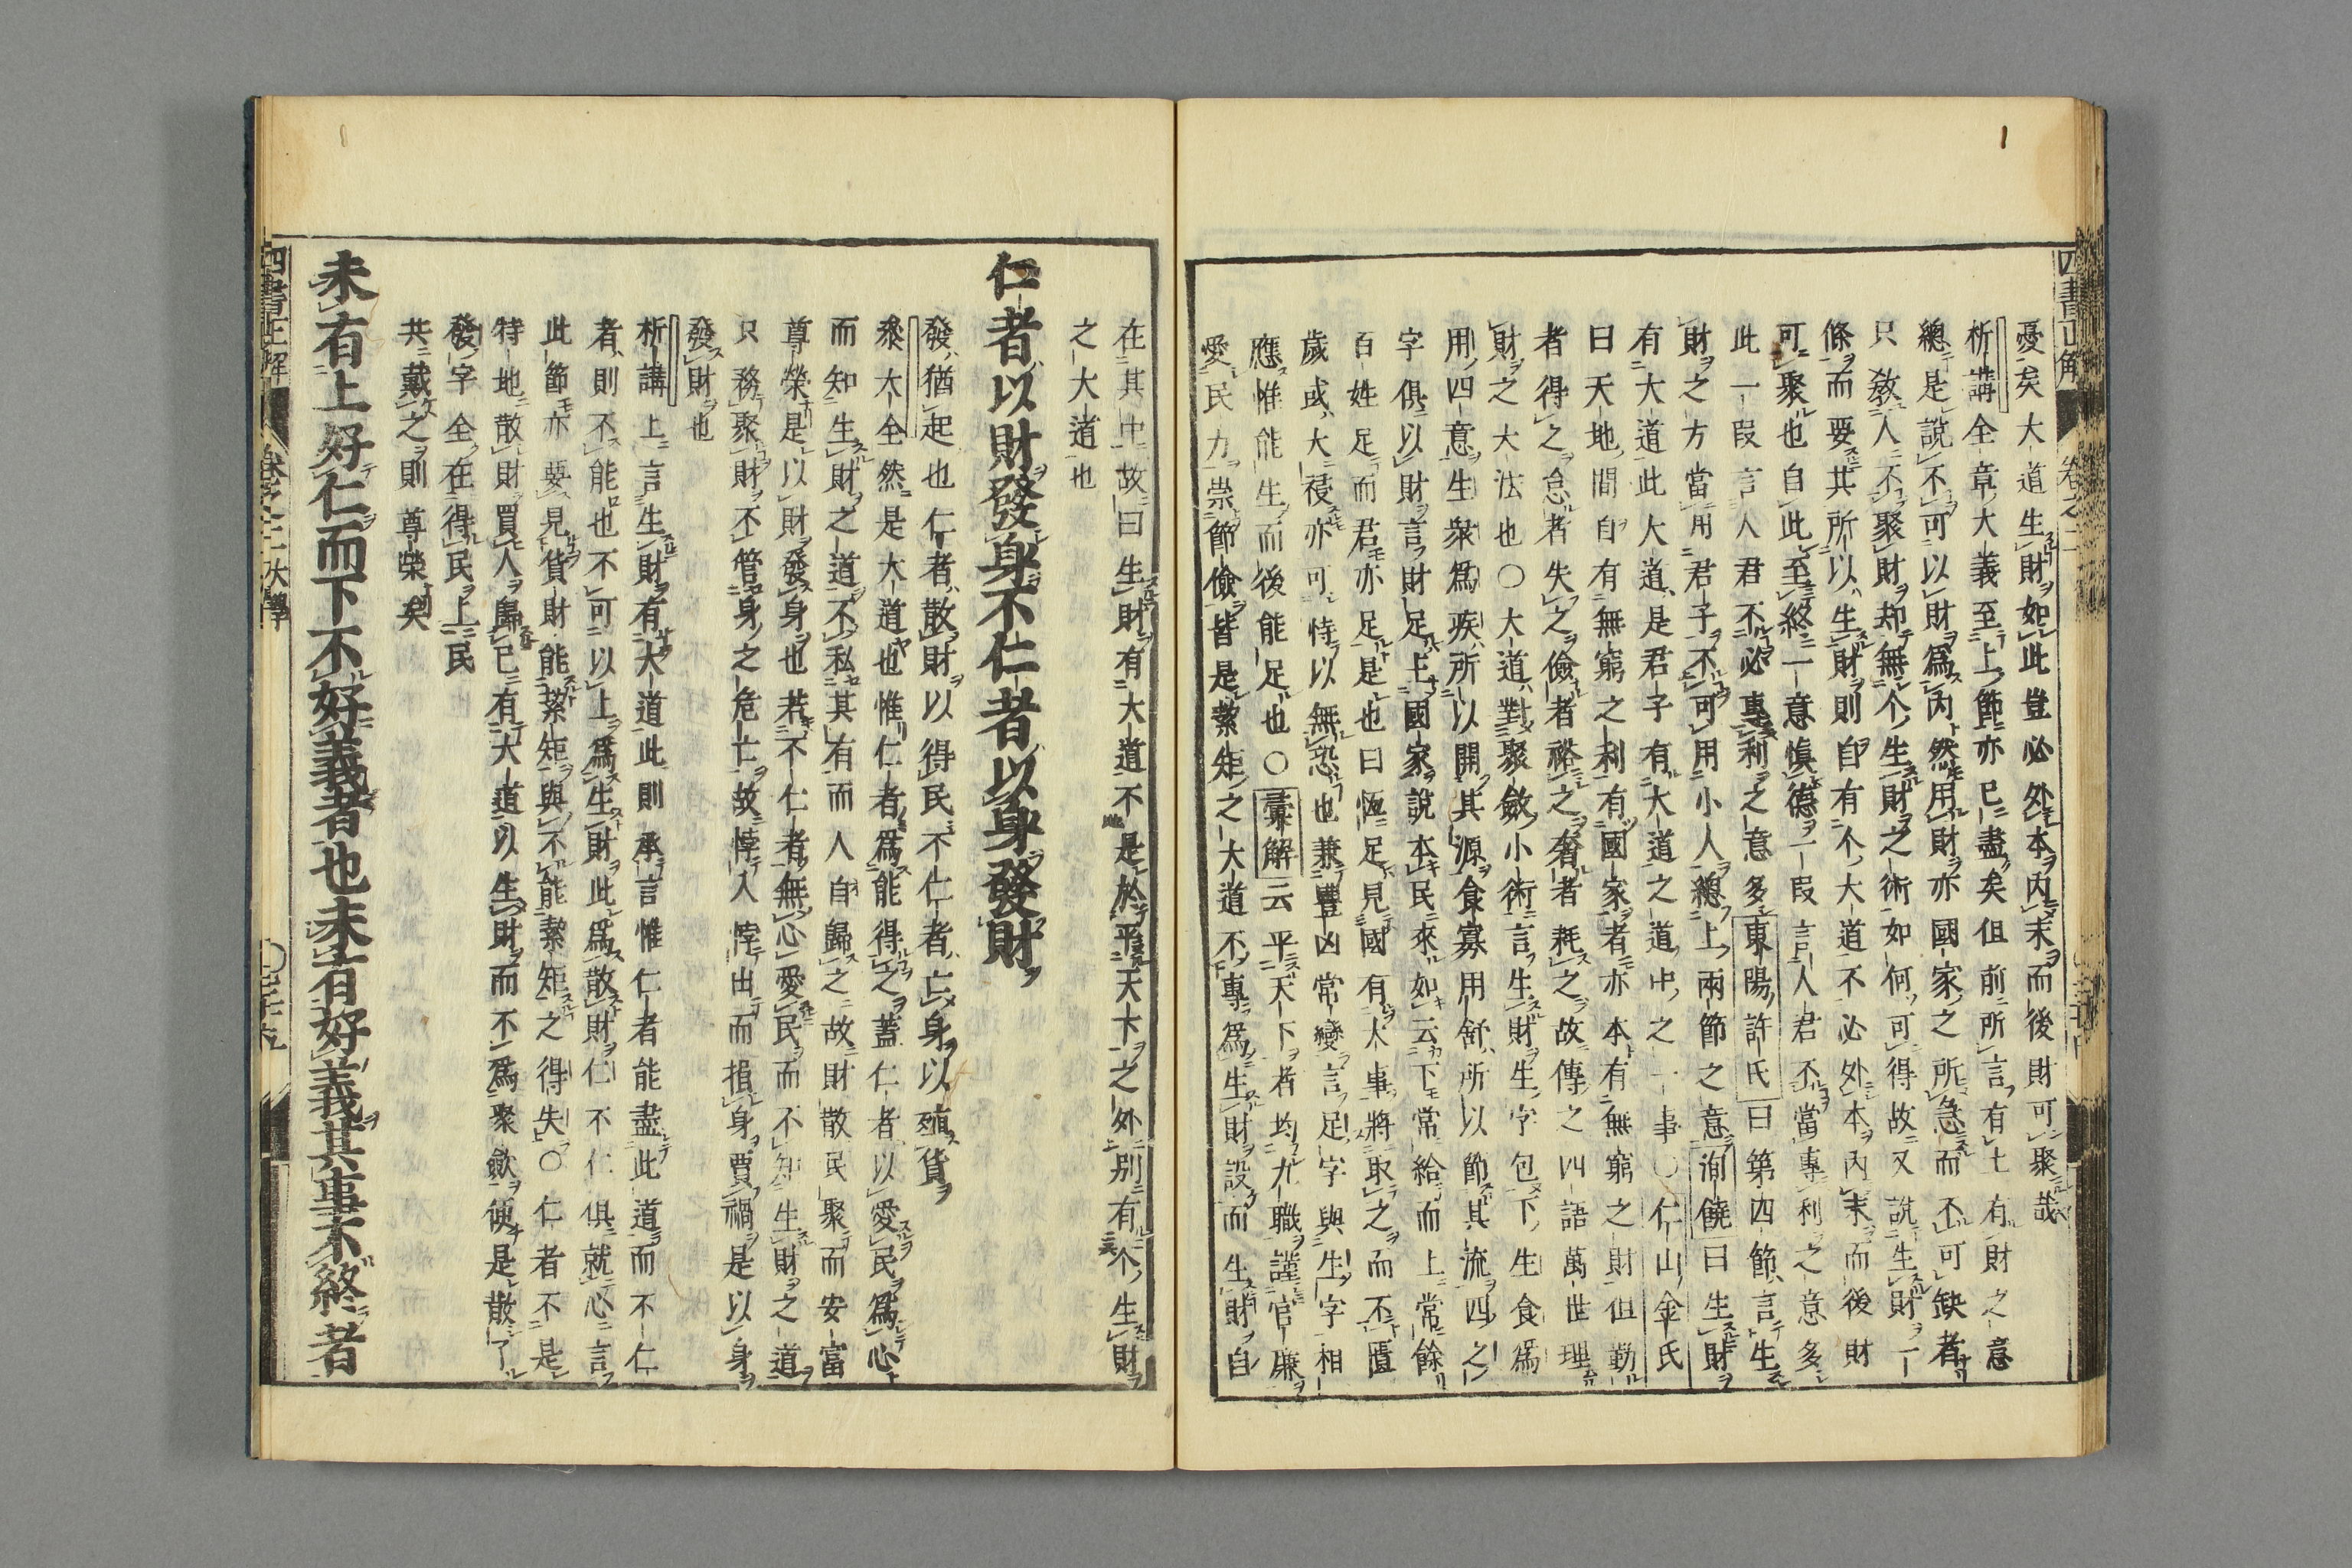 四書正解 卷之二
憂矣大道生財如此豈必外本內末而後財可聚哉
析講全章大義至上節亦已盡矣但前所言有土有財之意
總是說不可以財爲內然用財亦國家之所急而不可缺者
只教人不聚財却無个生財之術如何可得故又說生財一
條而要其所以生財則自有个大道不必外本內末而後財
可聚也自此至終一意愼德一段言人君不當專利之意多
此一段言人君不必專利之意多東陽許氏曰第四節言生
財之方當用君子不可用小人總上兩節之意洵饒曰生財
有大道此大道是君子有大道之道中之一事〇仁山金氏
曰天地間自有無窮之利有國家者亦本有無窮之財但勤
者得之怠者失之儉者裕之奢者耗之故傳之四語萬世理
財之大法也〇大道對聚斂小術言生財生字包下生食爲
用四意生衆爲疾所以開其源食寡用舒所以節其流四之
字俱以財言財足上國家說本民來如云下常給而上常餘
百姓足而君亦足是也曰恆足見國有大事將取之而不匱
歲或大祲亦可恃以無恐也兼豐凶常變言足字與生字相
應惟能生而後能足也〇彙解云平天下者均九職謹官廉
愛民力崇節儉皆是絜矩之大道不專爲生財設而生財自
在其中故曰生財有大道不是於平天下之外別有个生財
之大道也
仁者以財發身不仁者以身發財
發猶起也仁者散財以得民不仁者亡身以殖貨
衆大全然是大道也惟仁者爲能得之蓋仁者以愛民爲心
而知生財之道不私其有而人自歸之故財散民聚而安富
尊榮是以財發身也若不仁者無心愛民而不知生財之道
只務聚財不管身之危亡故悖入悖出而損身賈禍是以身
發財也
析講上言生財有大道此則承言惟仁者能盡此道而不仁
者則不能也不可以上爲生財此爲散財仁不仁俱就心言
此節亦要見貨財能絜矩與不能絜矩之得失〇仁者不是
特地散財買人歸已有大道以生財而不爲聚斂便是散了
發字全在得民上民
共戴之則尊榮矣
未有上好仁而下不好義者也未有好義其事不終者
四書正解 卷之二大學